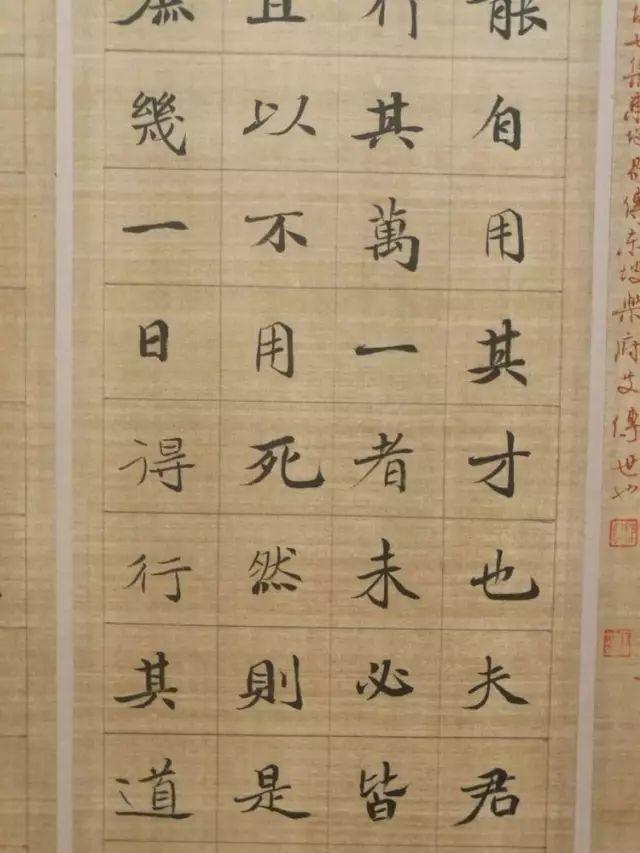 傳东坡樂府
能自用其才也夫君
行其萬一者未必皆
且以不用死然則是
庶幾一日得行其道